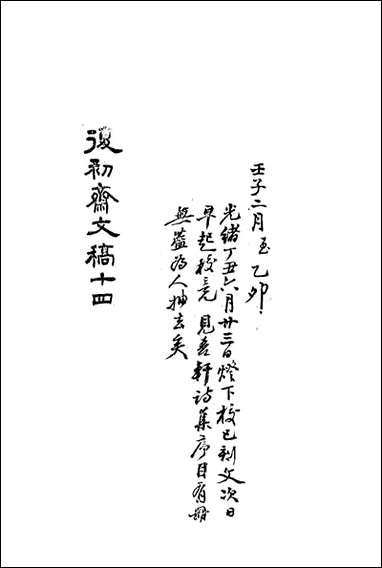 壬子二月至乙卯
光緒丁丑六月廿三日燈下校已刻文次日
早起校竟見吾軒詩集序目有冊
無蓋為人抽去矣
復初齋文稿十四